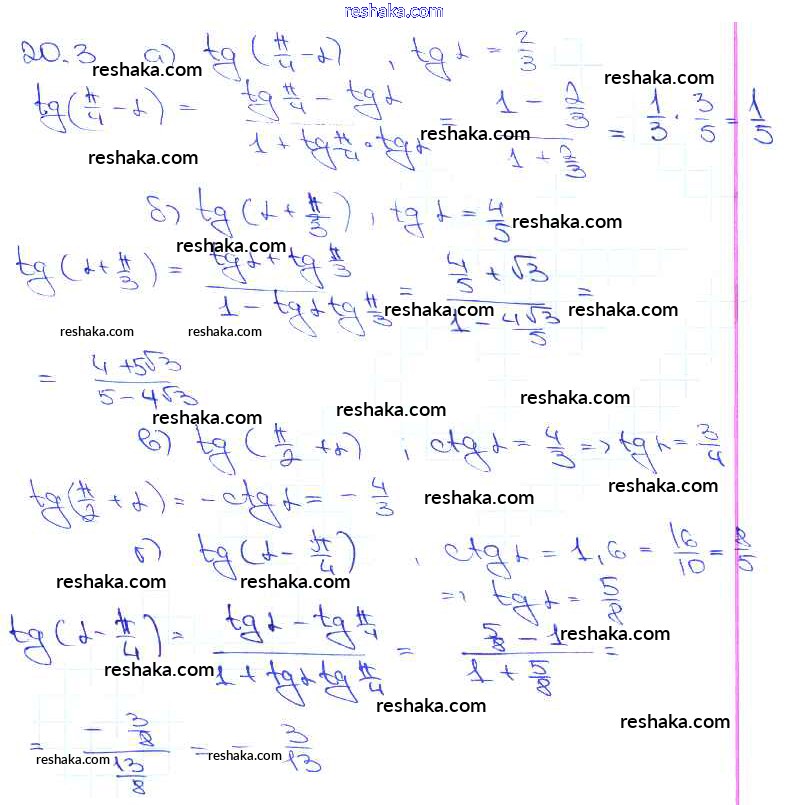 reshaka.com
20.3 а) tg(π/4 - α) , tg α = 2/3
reshaka.com reshaka.com
tg(π/4 - α) = (tg π/4 - tg α)/(1 + tg π/4 · tg α) = (1 - 2/3)/(1 + 2/3) = 1/3 · 3/5 = 1/5
reshaka.com reshaka.com
б) tg(α + π/3), tg α = 4/5
reshaka.com reshaka.com
tg(α + π/3) = (tg α + tg π/3)/(1 - tg α tg π/3) = (4/5 + √3)/(1 - 4√3/5) =
reshaka.com reshaka.com reshaka.com
= (4 + 5√3)/(5 - 4√3)
reshaka.com reshaka.com reshaka.com
в) tg(π/2 + α) , ctg α = 4/3 => tg α = 3/4
reshaka.com reshaka.com
tg(π/2 + α) = - ctg α = - 4/3
reshaka.com reshaka.com
г) tg(α - π/4) , ctg α = 1,6 = 16/10 = 8/5
reshaka.com reshaka.com
=> tg α = 5/8
tg(α - π/4) = (tg α - tg π/4)/(1 + tg α tg π/4) = (5/8 - 1)/(1 + 5/8) =
reshaka.com reshaka.com
reshaka.com reshaka.com
= (- 3/8)/(13/8) = - 3/13
reshaka.com reshaka.com